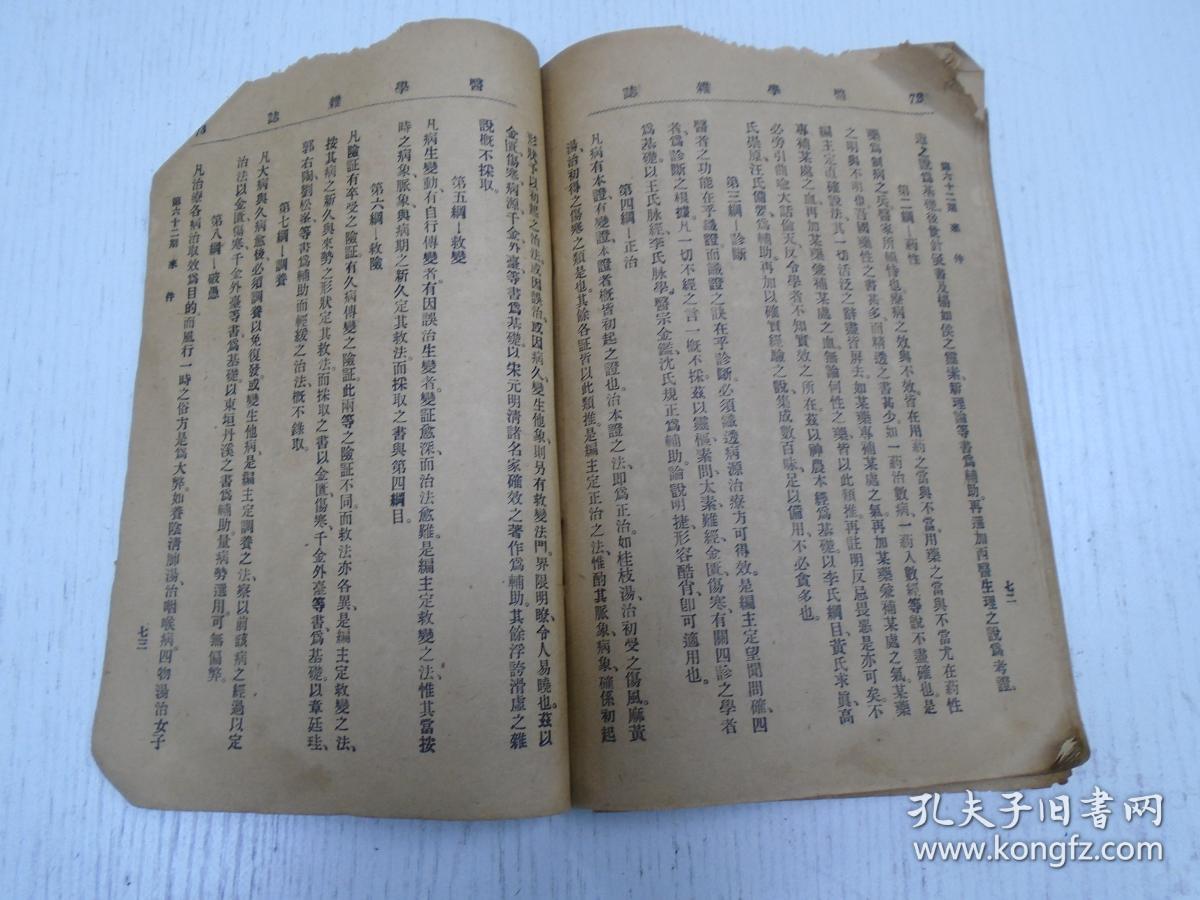 醫學雜誌
72
第六十二期 來件
七二
之說爲基礎後世針灸書及楊如侯之靈素新理論等書爲輔助再適加西醫生理之說爲考證
第二綱—药性
藥爲制病之兵醫家所補恃也療病之效與不效皆在用药之當與不當用藥之當與不當尤在药性
之明與不明也吾國藥性之書甚多而精透之書甚少如一药治數病一药入數經等說不盡確也是
編主定直確說法其一切活泛之辭盡皆屏去如某藥專補某處之氣再加某藥兼補某處之氣某藥
專補某處之血再加某藥兼補某處之血無論何性之藥皆以此類推再註明反忌畏惡是亦可矣不
必旁引曲喻大話倫天反令學者不知實效之所在茲以神農本經爲基礎以李氏綱目黃氏求眞高
氏崇原汪氏備要爲輔助再加以確實經驗之說集成數百味足以備用不必貪多也
第三綱—診斷
醫者之功能在乎識證而識證之訣在乎診斷必須識透病源治療方可得效是編主定望聞問確四
者爲診斷之根據凡一切不經之言一概不採茲以靈樞素問太素難經金匱傷寒有關四診之學者
爲基礎以王氏脉經李氏脉學醫宗金鑑沈氏規正爲輔助論說明捷形容酷肖卽可適用也
第四綱—正治
凡病有本證有變證本證者概皆初起之證也治本證之法卽爲正治如桂枝湯治初受之傷風麻黃
湯治初得之傷寒之類是也其餘各証皆以此類推是編主定正治之法惟酌其脈象病象確係初起
醫學雜誌
形狀予以初起之治法或因誤治或因病久變生他象則另有救變法門界限明瞭令人易曉也茲以
金匱傷寒病源千金外臺等書爲基礎以宋元明清諸名家確效之著作爲輔助其餘浮誇滑慮之雜
說概不採取
第五綱—救變
凡病生變動有自行傳變者有因誤治生變者變証愈深而治法愈難是編主定救變之法惟其當按
時之病象脈象與病期之新久定其救法而採取之書與第四綱目
第六綱—救險
凡險証有卒受之險証有久病傳變之險証此兩等之險証不同而救法亦各異是編主定救變之法
按其病之新久與來勢之形狀定其救法而採取之書以金匱傷寒千金外臺等書爲基礎以章廷珪
郭右陶劉松峯等書爲輔助而輕緩之治法概不錄取
第七綱—調養
凡大病與久病愈後必須調養以免復發或變生他病是編主定調養之法察以前該病之經過以定
治法以金匱傷寒千金外臺等書爲基礎以東垣丹溪之書爲輔助量病勢選用可無偏弊
第八綱—破愚
凡治療各病治取效爲目的而風行一時之俗方是爲大弊如養陰清肺湯治咽喉病四物湯治女子
第六十二期 來件
七三
孔夫子旧书网
www.kongfz.com